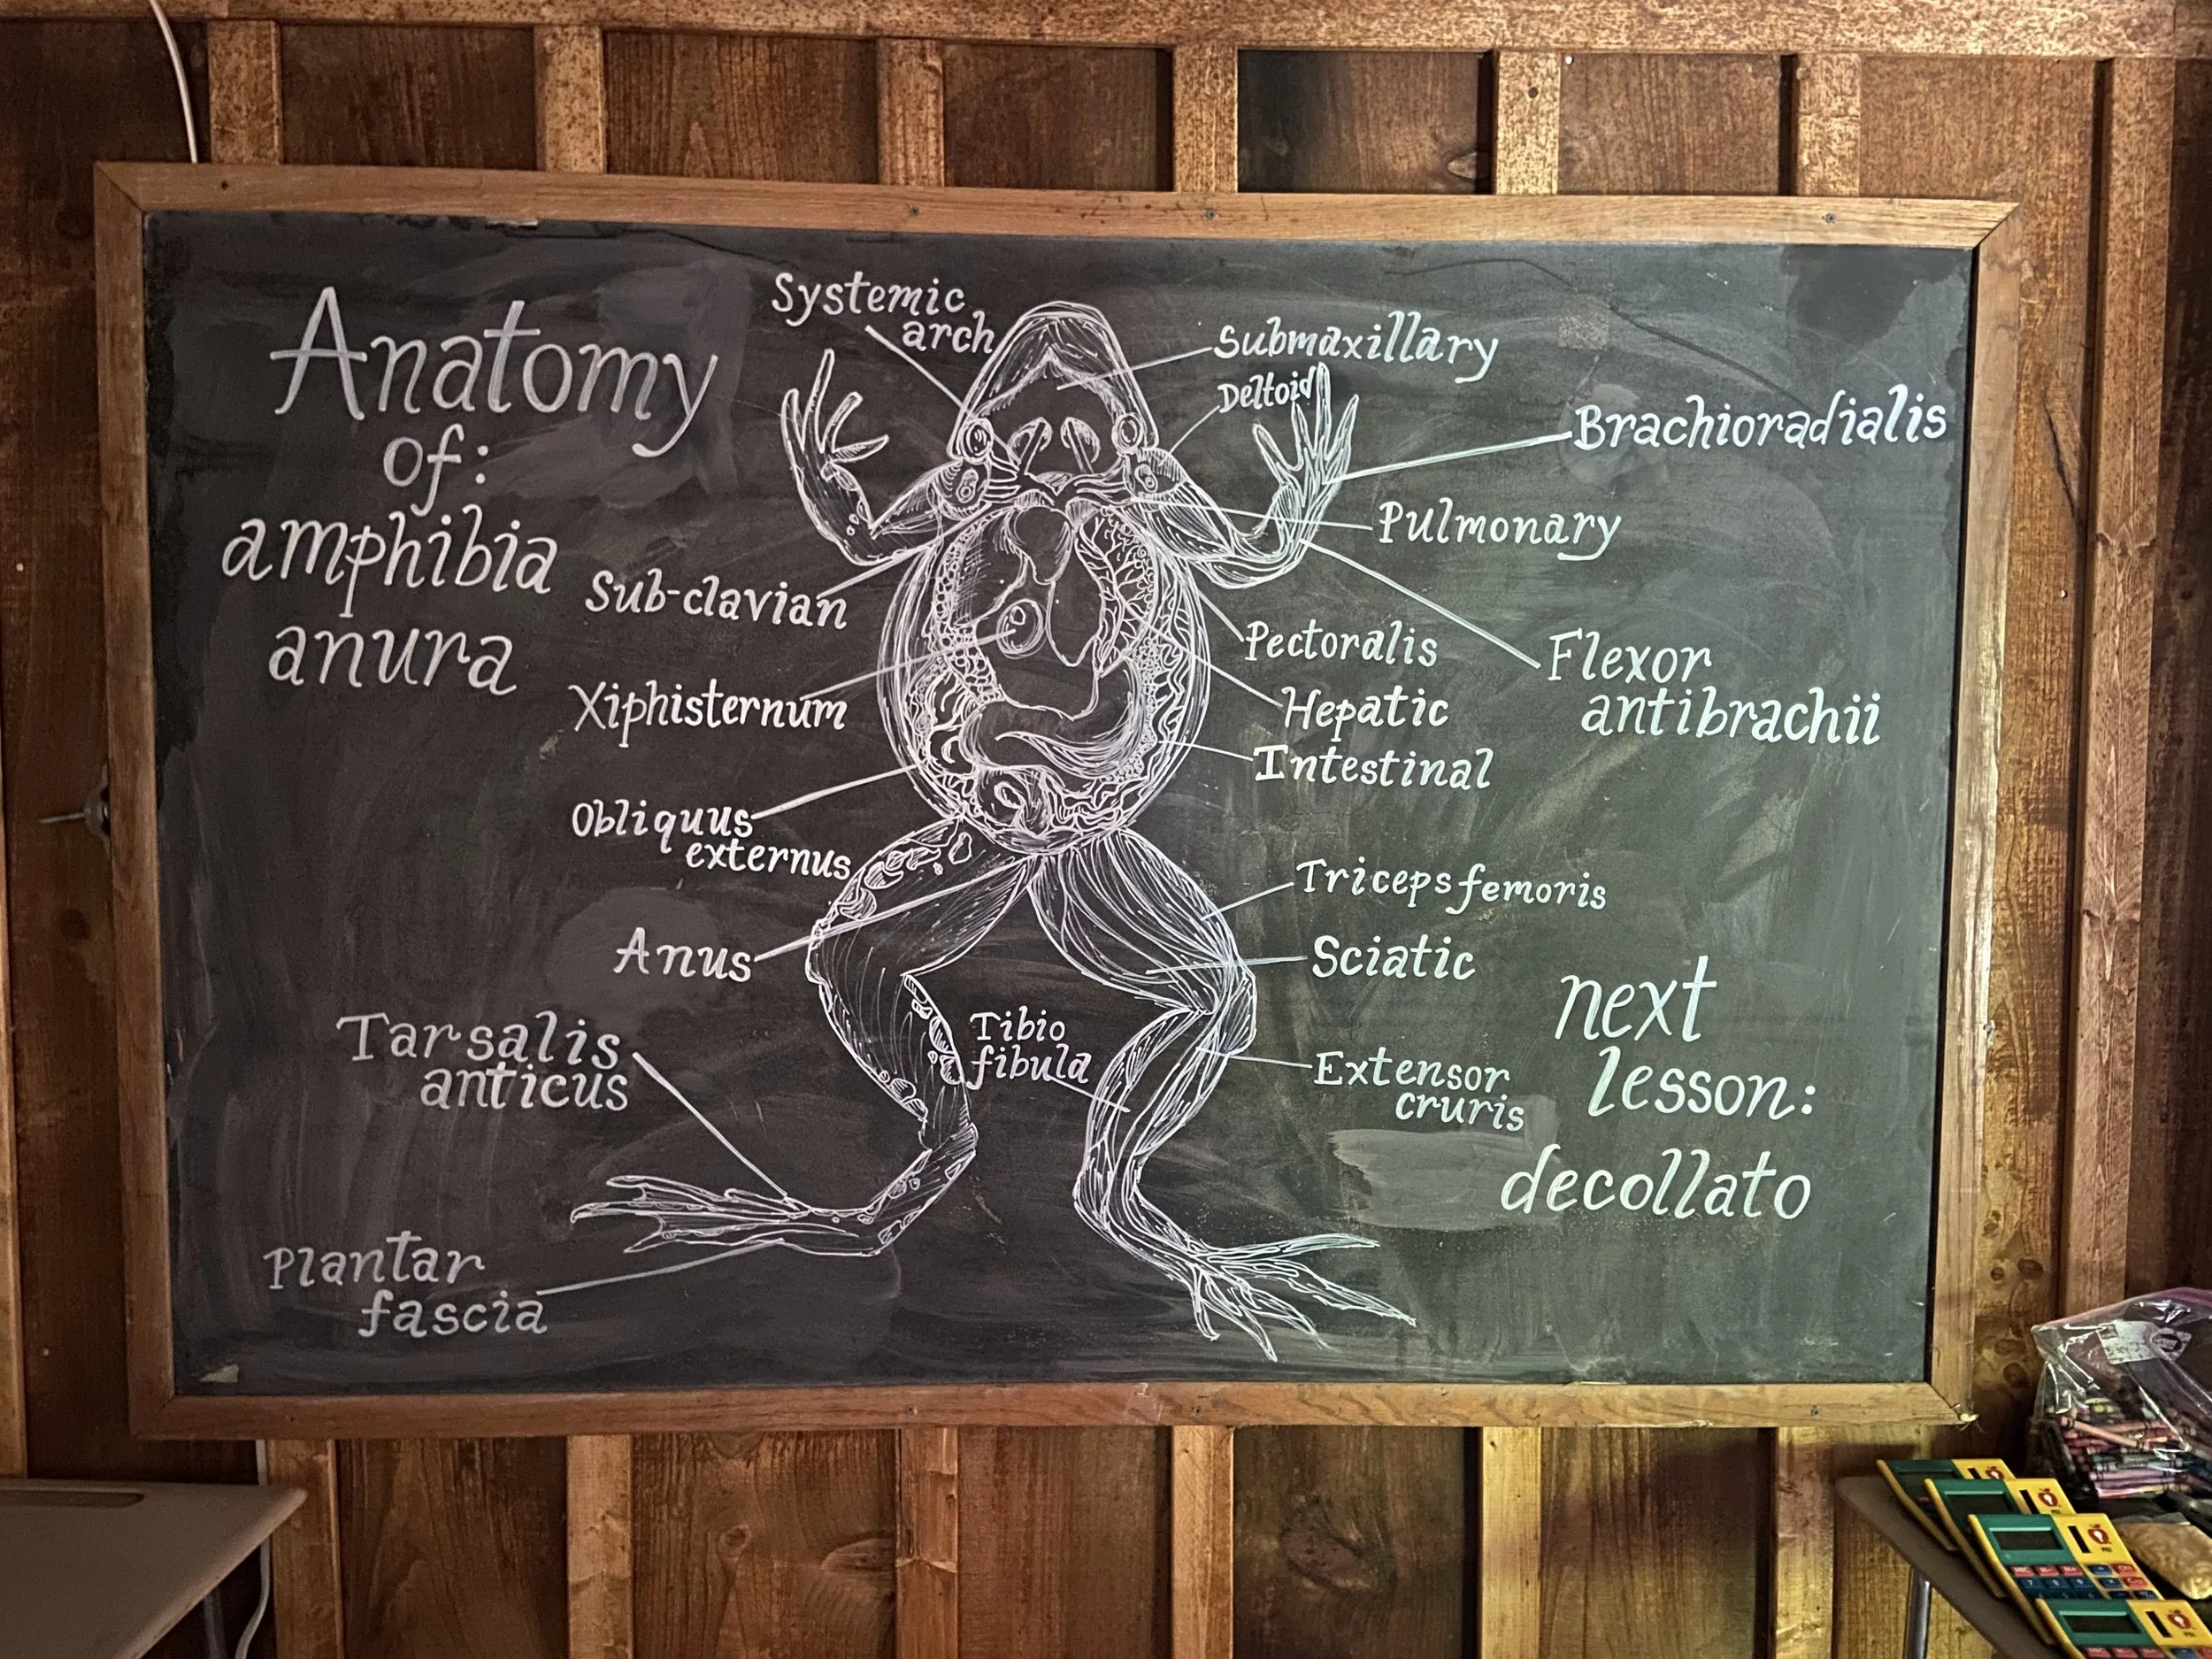 Anatomy
of:
amphibia
anura
Systemic
arch
Submaxillary
Deltoid
Brachioradialis
Pulmonary
Sub-clavian
Pectoralis
Flexor
antibrachii
Xiphisternum
Hepatic
Intestinal
Obliquus
externus
Triceps femoris
Anus
Sciatic
Tarsalis
anticus
Tibio
fibula
Extensor
cruris
Plantar
fascia
next
lesson:
decollato